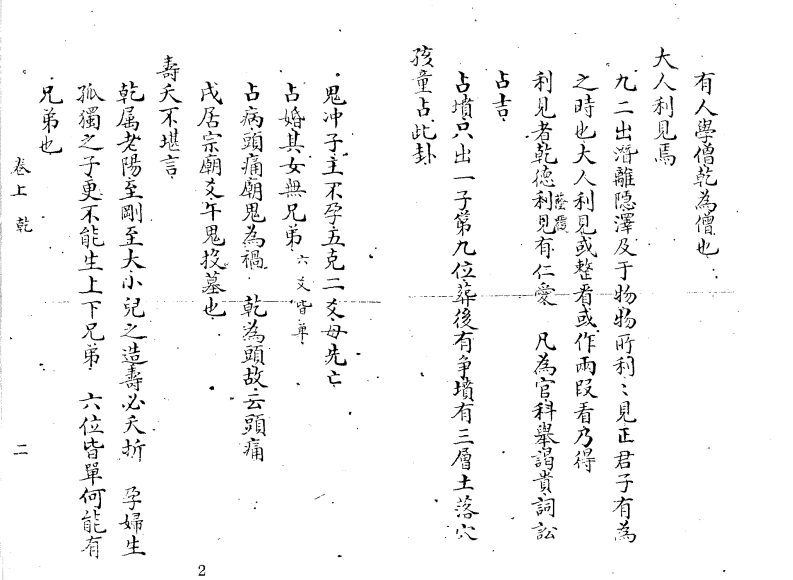 有人學僧乾為僧也
大人利見焉
九二出潛離隱澤及于物物所利〻見正君子有為
之時也大人利見或整看或作兩段看乃得
利見者乾德利見有仁愛　凡為官科舉謁貴詞訟
占吉
占墳只出一子第九位葬後有爭墳有三層土落穴
孩童占此卦
鬼冲子主不孕五克二爻母先亡
占婚其女無兄弟六爻皆單
占病頭痛廟鬼為禍　乾為頭故云頭痛
戌居宗廟爻午鬼投墓也
壽夭不堪言
乾属老陽至剛至大小兒之造壽必夭折　孕婦生
孤獨之子更不能生上下兄弟　六位皆單何能有
兄弟也
卷上　乾　二
2